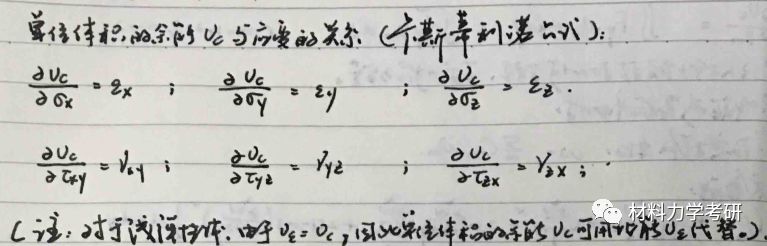 单位体积的余能Uc与应变的关系(卡斯蒂利诺公式):
∂Uc/∂σx = εx ; ∂Uc/∂σy = εy ; ∂Uc/∂σz = εz .
∂Uc/∂τxy = γxy ; ∂Uc/∂τyz = γyz ; ∂Uc/∂τzx = γzx ;
材料力学考研
(注:对于线弹性体,由于Uε=Uc,因此单位体积的余能Uc可用应变能Uε代替。)